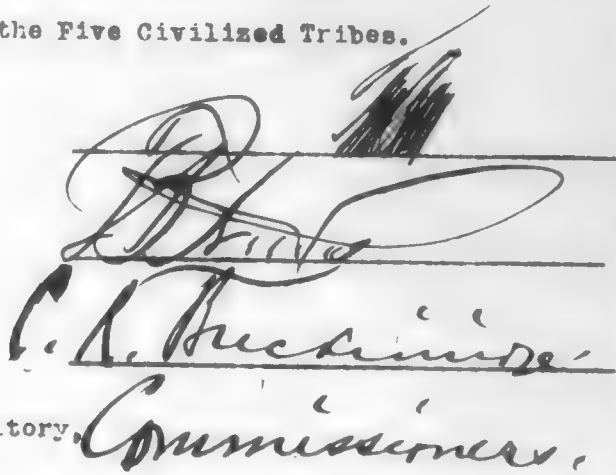 the Five Civilized Tribes.
C. R. Breckinridge.
itory, Commissioners.